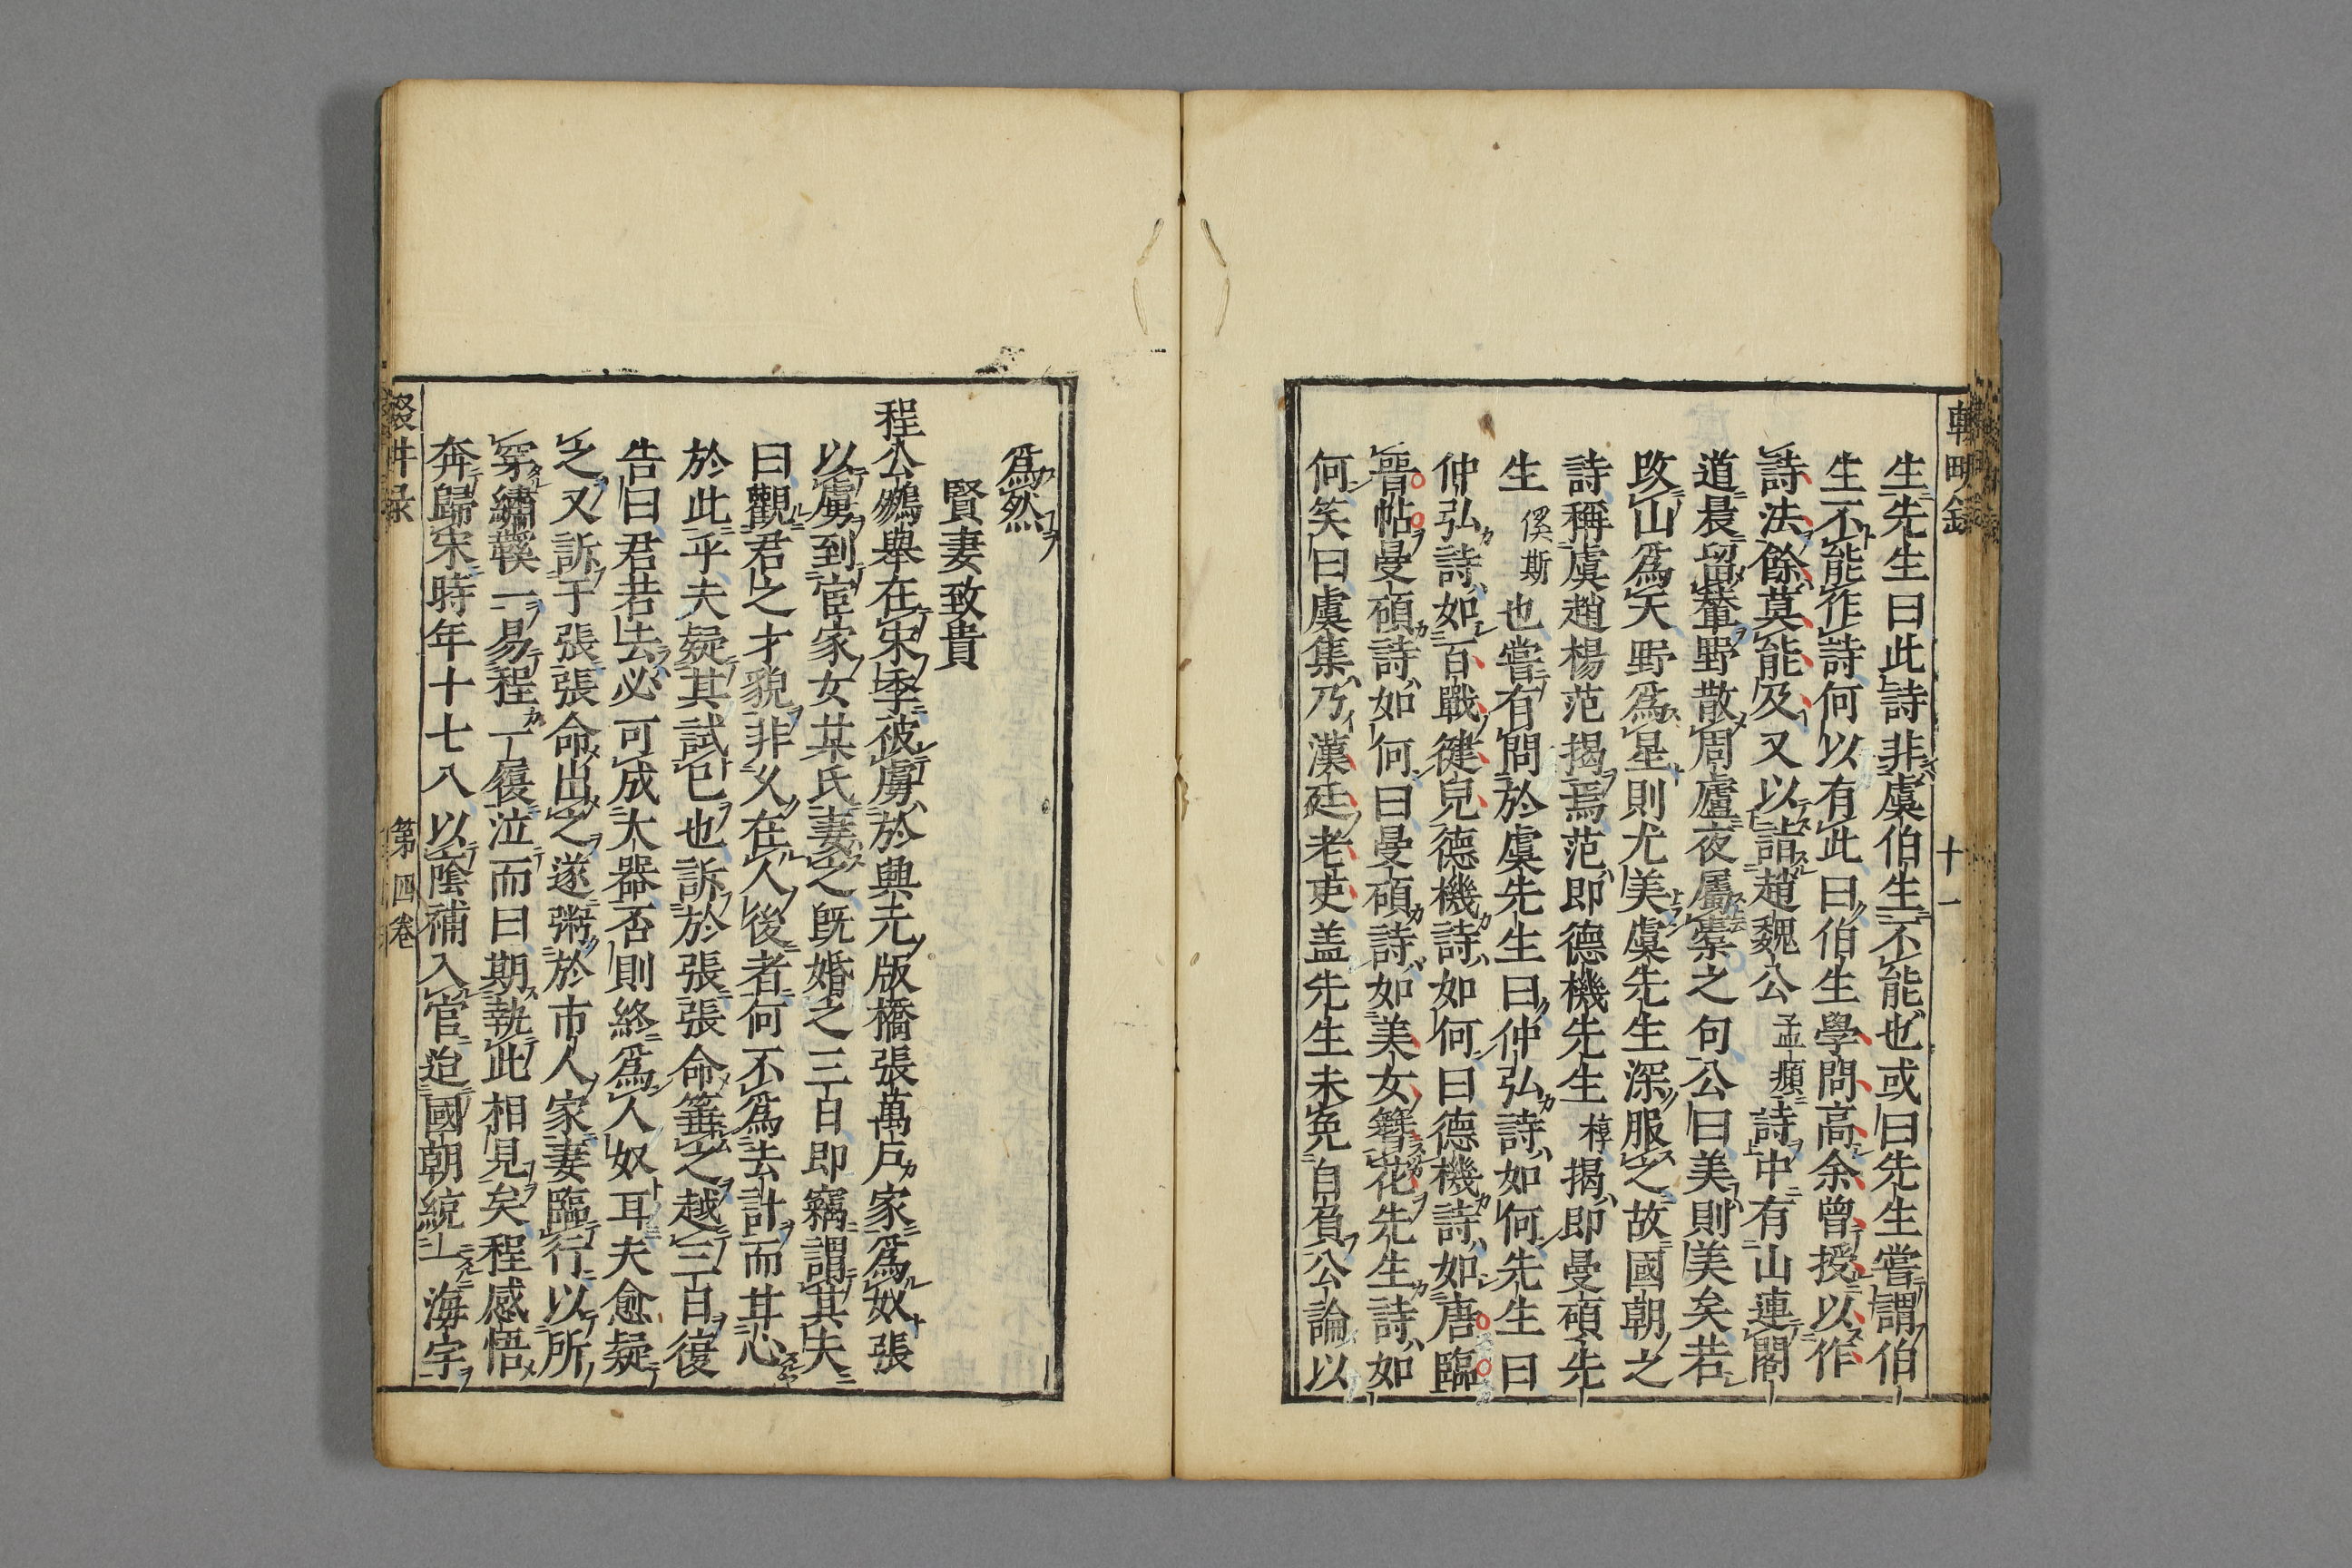 生先生曰此詩非虞伯生不能也或曰先生嘗謂伯
生不能作詩何以有此曰伯生學問高余曾授以作
詩法餘莫能及又以詣趙魏公孟頫詩中有山連閣
道晨留輦野散周廬夜屬櫜之句公曰美則美矣若
改山爲天野爲星則尤美虞先生深服之故國朝之
詩稱虞趙楊范揭焉范即德機先生梈揭即曼碩先
生傒斯也嘗有問於虞先生曰仲弘詩如何先生曰
仲弘詩如百戰健兒德機詩如何曰德機詩如唐臨
晉帖曼碩詩如何曰曼碩詩如美女簪花先生詩如
何笑曰虞集乃漢廷老吏盖先生未免自負公論以
十一
爲然
賢妻致貴
程公鵬舉在宋季被虜於興元版橋張萬戶家爲奴張
以虜到宦家女某氏妻之既婚之三日即竊謂其夫
曰觀君之才貌非久在人後者何不爲去計而甘心
於此乎夫疑其試已也訴於張張命箠之越三日復
告曰君若去必可成大器否則終爲人奴耳夫愈疑
之又訴于張張命出之遂粥於市人家妻臨行以所
穿繡鞵一易程一履泣而曰期執此相見矣程感悟
奔歸宋時年十七八以蔭補入官迨國朝統一海宇
輟畊录 第四卷